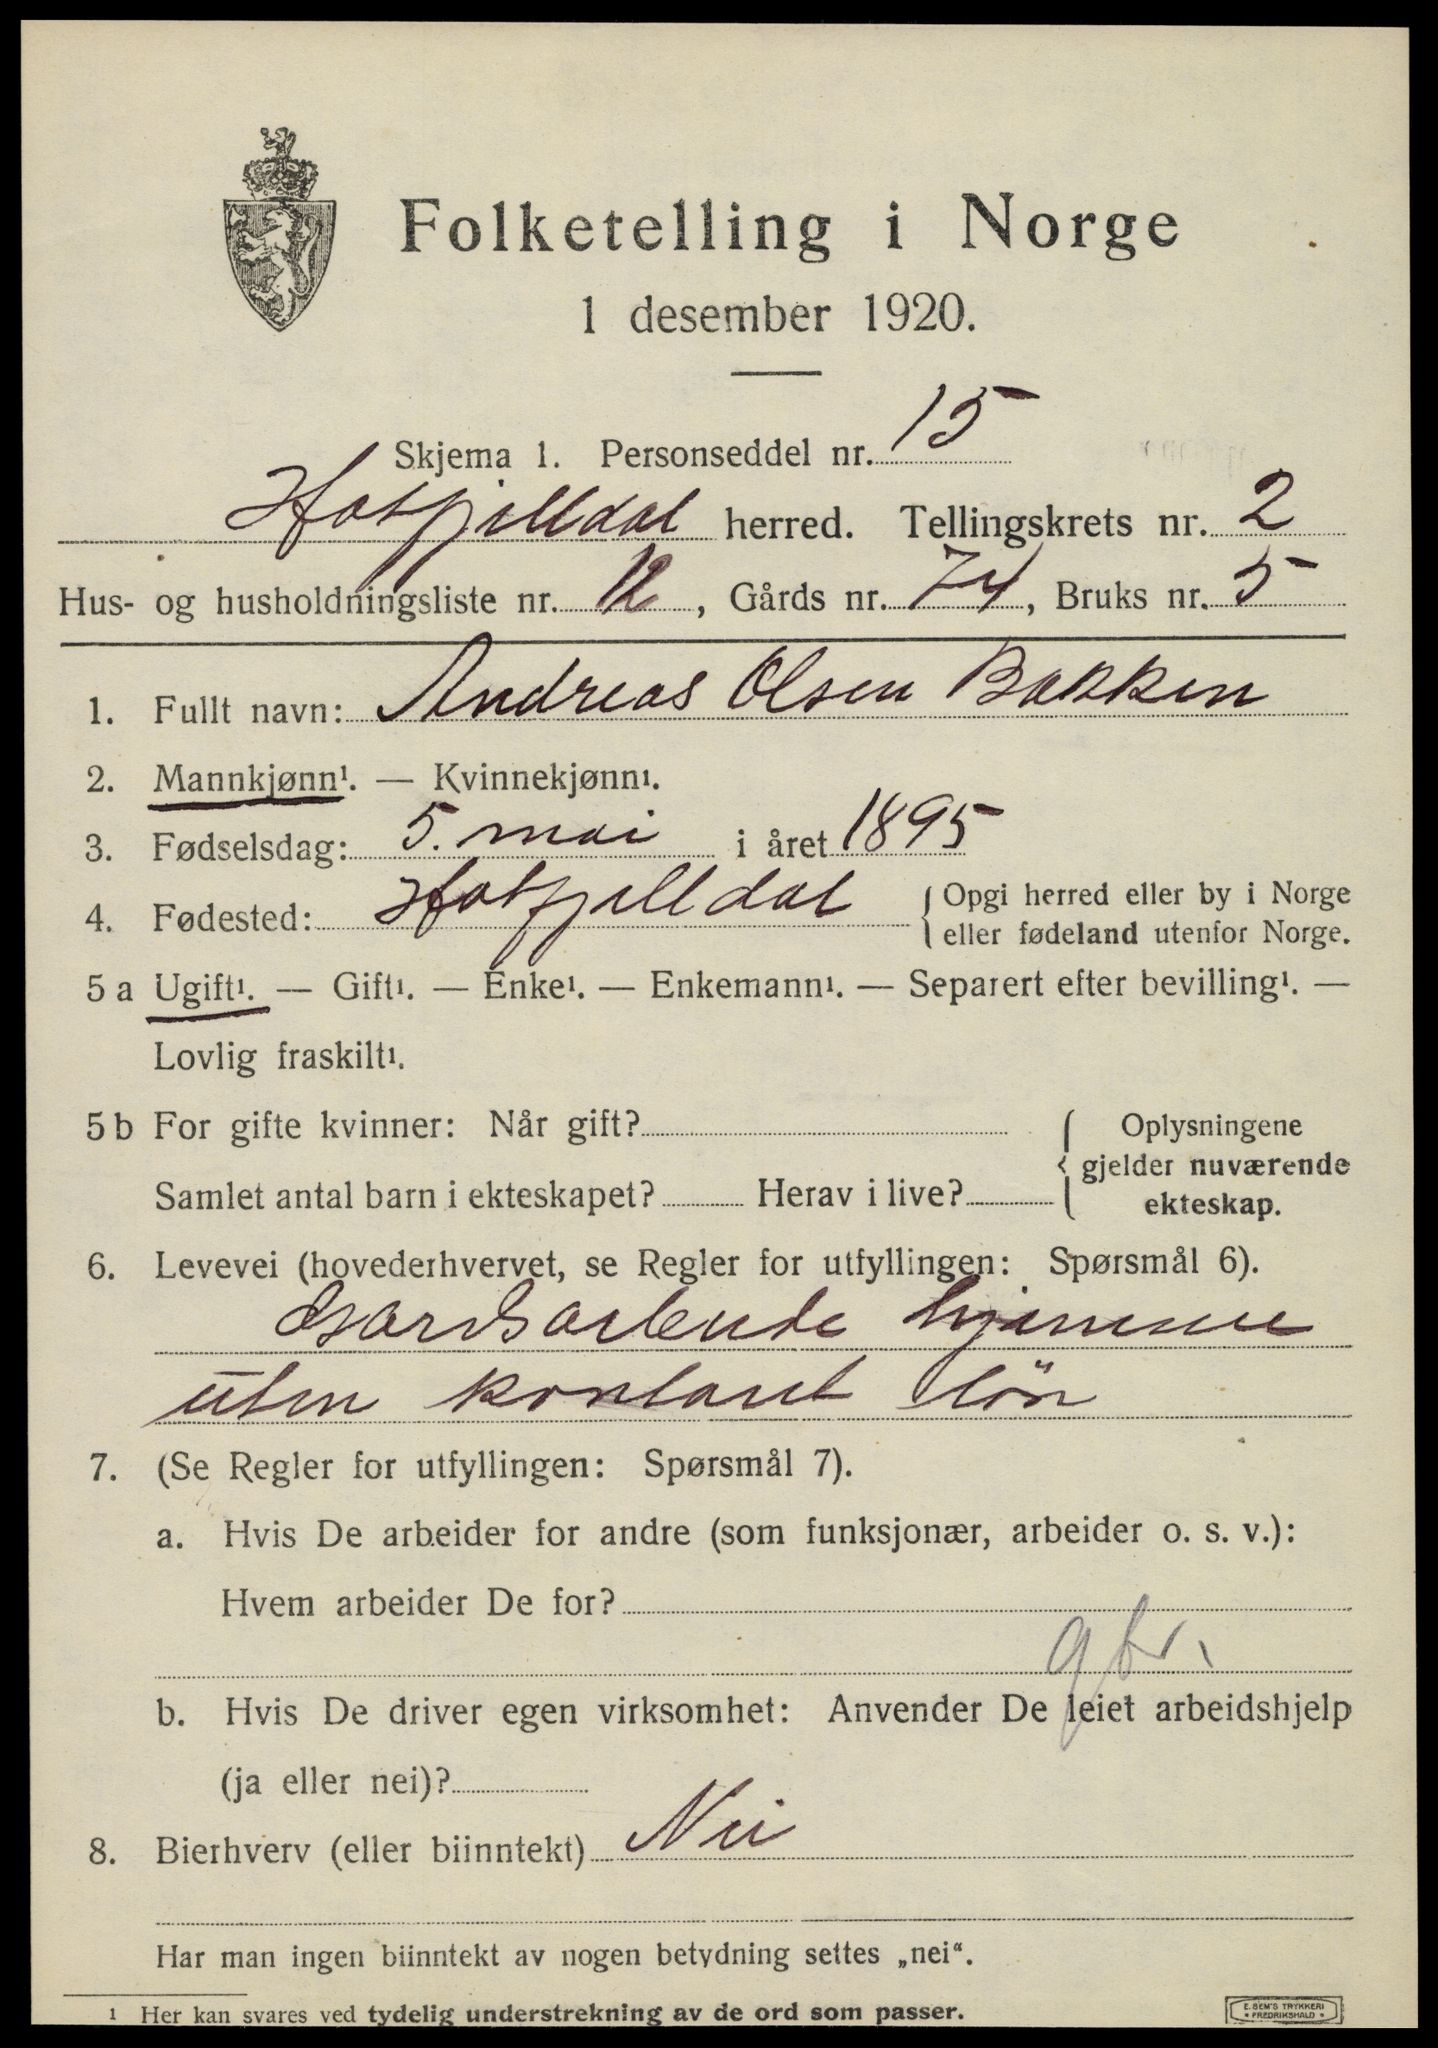 Folketelling i Norge
1 desember 1920.
Skjema 1. Personseddel nr. 15
Hatfjelldal herred. Tellingskrets nr. 2
Hus- og husholdningsliste nr. 12, Gårds nr. 74, Bruks nr. 5
1. Fullt navn: Andreas Olsen Bakken
2. Mannkjønn¹. — Kvinnekjønn¹.
3. Fødselsdag: 5. mai i året 1895
4. Fødested: Hatfjelldal { Opgi herred eller by i Norge
eller fødeland utenfor Norge.
5 a Ugift¹. — Gift¹. — Enke¹. — Enkemann¹. — Separert efter bevilling¹. —
Lovlig fraskilt¹.
5 b For gifte kvinner: Når gift?
Samlet antal barn i ekteskapet? Herav i live?
{ Oplysningene
gjelder nuværende
ekteskap.
6. Levevei (hovederhvervet, se Regler for utfyllingen: Spørsmål 6).
Gardsarbeide hjemme
uten kontant løn
7. (Se Regler for utfyllingen: Spørsmål 7).
a. Hvis De arbeider for andre (som funksjonær, arbeider o. s. v.):
Hvem arbeider De for?
gbr.
b. Hvis De driver egen virksomhet: Anvender De leiet arbeidshjelp
(ja eller nei)?
8. Bierhverv (eller biinntekt) Nei
Har man ingen biinntekt av nogen betydning settes „nei“.
¹ Her kan svares ved tydelig understrekning av de ord som passer.
E. SEM'S TRYKKERI
• FREDRIKSHALD •